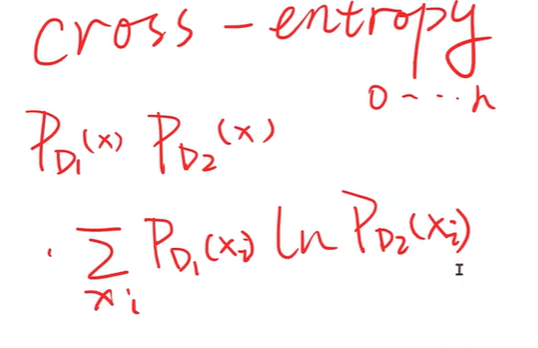 cross - entropy
0 - ... n
P_{D_1}(x) P_{D_2}(x)
. \sum_{x_i} P_{D_1}(x_i) ln P_{D_2}(x_i)